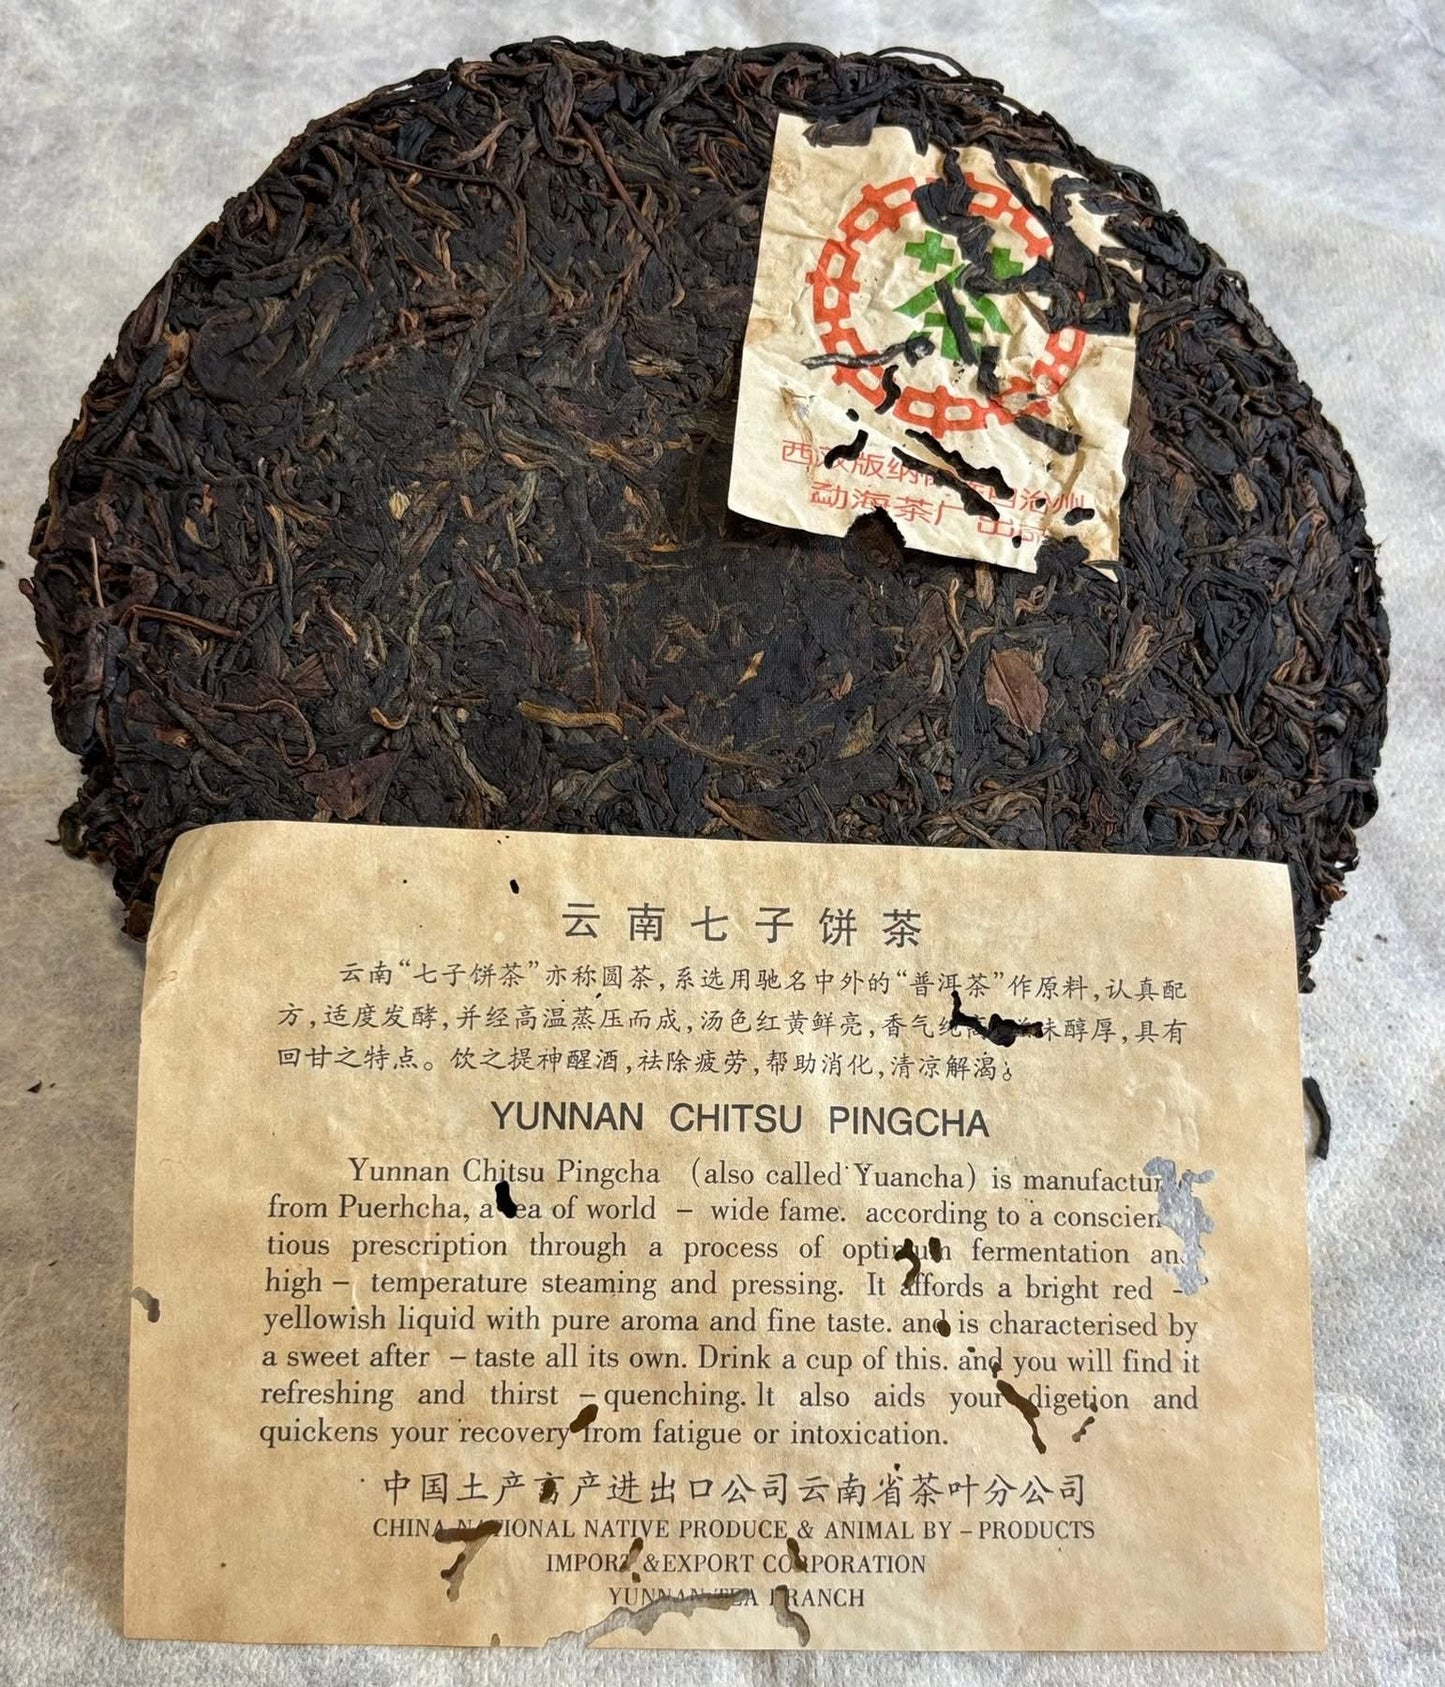 茶
中 中 中 中 中 中 中
西双版纳 治州
勐海茶厂出
云南七子饼茶
云南“七子饼茶”亦称圆茶,系选用驰名中外的“普洱茶”作原料,认真配
方,适度发酵,并经高温蒸压而成,汤色红黄鲜亮,香气纯高 味醇厚,具有
回甘之特点。饮之提神醒酒,祛除疲劳,帮助消化,清凉解渴。
YUNNAN CHITSU PINGCHA
Yunnan Chitsu Pingcha (also called Yuancha) is manufactur
from Puerhcha, a tea of world – wide fame. according to a conscien
tious prescription through a process of optimum fermentation and
high – temperature steaming and pressing. It affords a bright red –
yellowish liquid with pure aroma and fine taste. and is characterised by
a sweet after – taste all its own. Drink a cup of this. and you will find it
refreshing and thirst – quenching. It also aids your digetion and
quickens your recovery from fatigue or intoxication.
中国土产畜产进出口公司云南省茶叶分公司
CHINA NATIONAL NATIVE PRODUCE & ANIMAL BY – PRODUCTS
IMPORT &EXPORT CORPORATION
YUNNAN TEA BRANCH